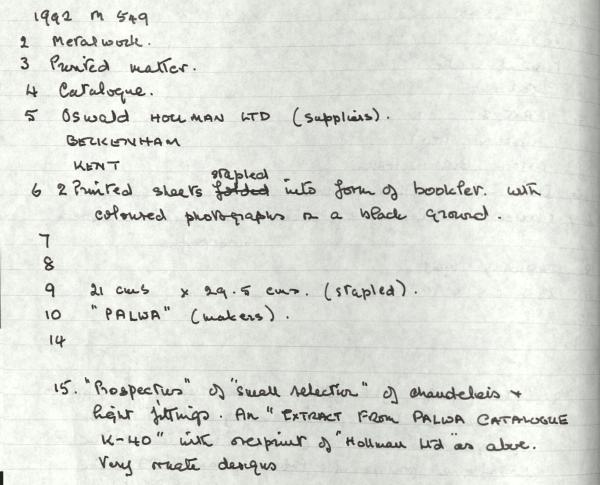 1992 M 549
2 Metalwork.
3 Printed matter.
4 Catalogue.
5 Oswald HOLLMAN LTD (suppliers).
BECKENHAM
KENT
stapled
6 2 Printed sheets folded into form of booklet. with
coloured photographs on a black ground.
7
8
9 21 cms x 29.5 cms. (stapled).
10 "PALWA" (makers).
14
15. "Prospectus" of "small selection" of chandeliers +
light fittings. An "EXTRACT FROM PALWA CATALOGUE
K-40" with overprint of "Hollman Ltd" as above.
Very ornate designs